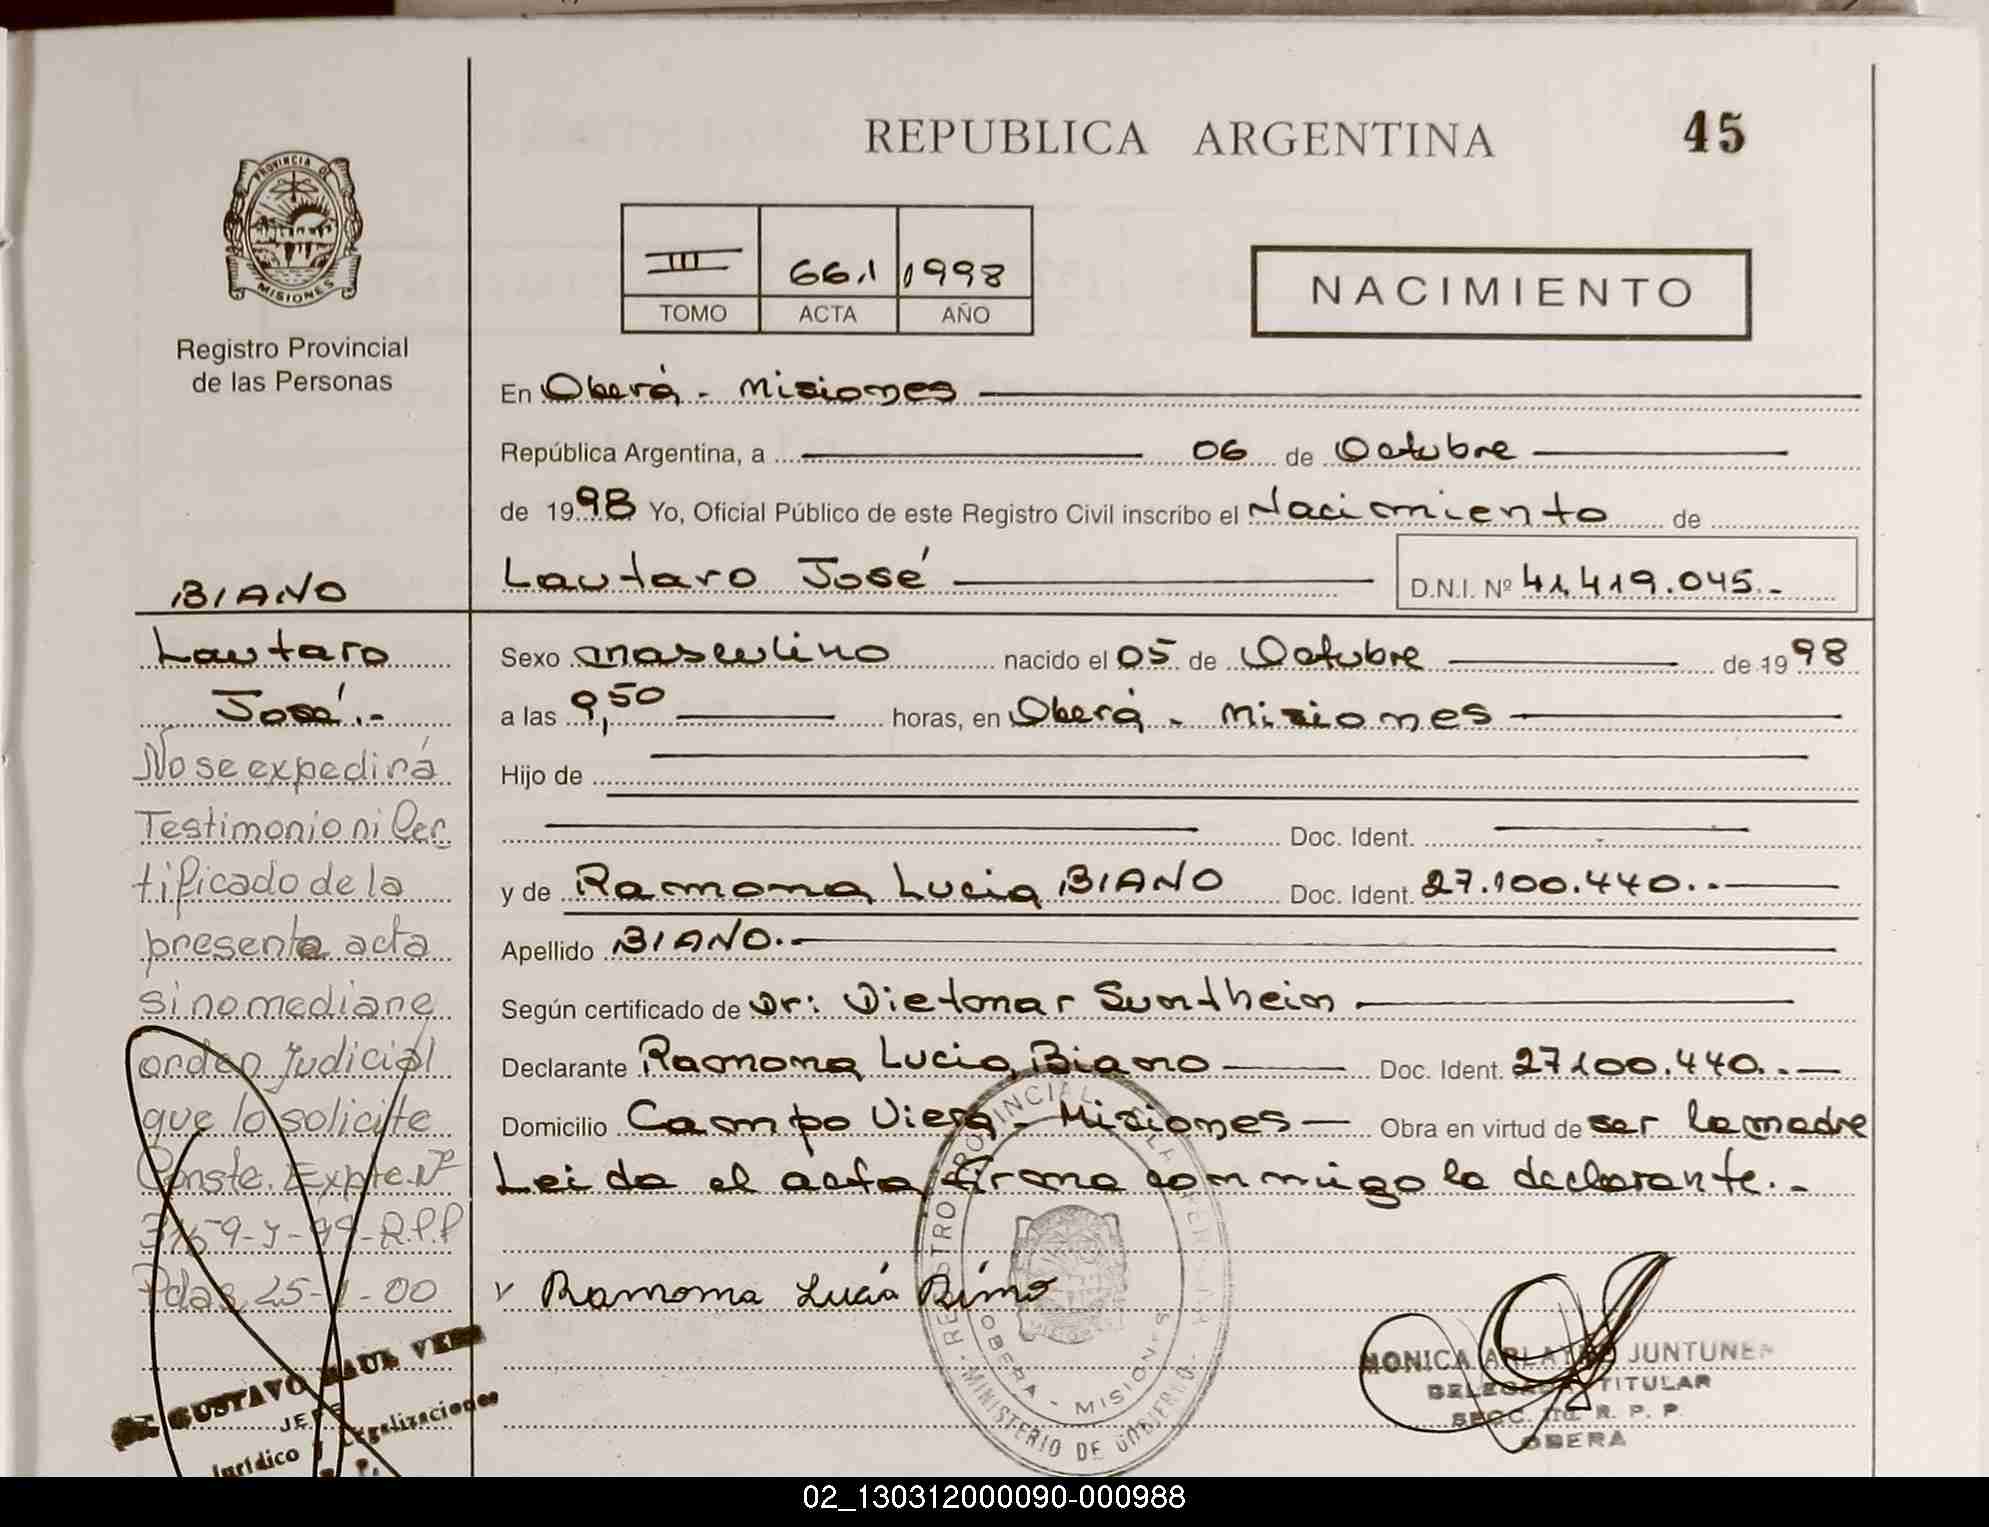 REPUBLICA ARGENTINA
45
PROVINCIA DE
MISIONES
Registro Provincial
de las Personas
III 661 1998
TOMO ACTA AÑO
NACIMIENTO
En Oberá - Misiones
República Argentina, a 06 de Octubre
de 1998 Yo, Oficial Público de este Registro Civil inscribo el Nacimiento de
Lautaro José D.N.I. Nº 41.419.045.-
Sexo masculino nacido el 05 de Octubre de 1998
a las 9,50 horas, en Oberá - Misiones
Hijo de
Doc. Ident.
y de Ramona Lucia BIANO Doc. Ident. 27.100.440.-
Apellido BIANO.-
Según certificado de Dr: Dietmar Suntheim
Declarante Ramona Lucia Biano Doc. Ident. 27.100.440.-
Domicilio Campo Viera - Misiones Obra en virtud de ser la madre
Leida el acta firma conmigo la declarante.-
Ramona Lucia
BIANO
Lautaro
José.-
No se expedirá
Testimonio ni Cer
tificado de la
presente acta
sino mediane
orden Judicial
que lo solicite
Conste. Expte. Nº
R.P.P
Pdas, 00
GUSTAVO RAUL VERA
JEFE
Jurídico y Legalizaciones
REGISTRO PROVINCIAL DE LAS PERSONAS
OBERA - MISIONES
MINISTERIO DE GOBIERNO
MONICA JUNTUNEN
DELEGADA TITULAR
SECC. R. P. P.
OBERA
02_130312000090-000988